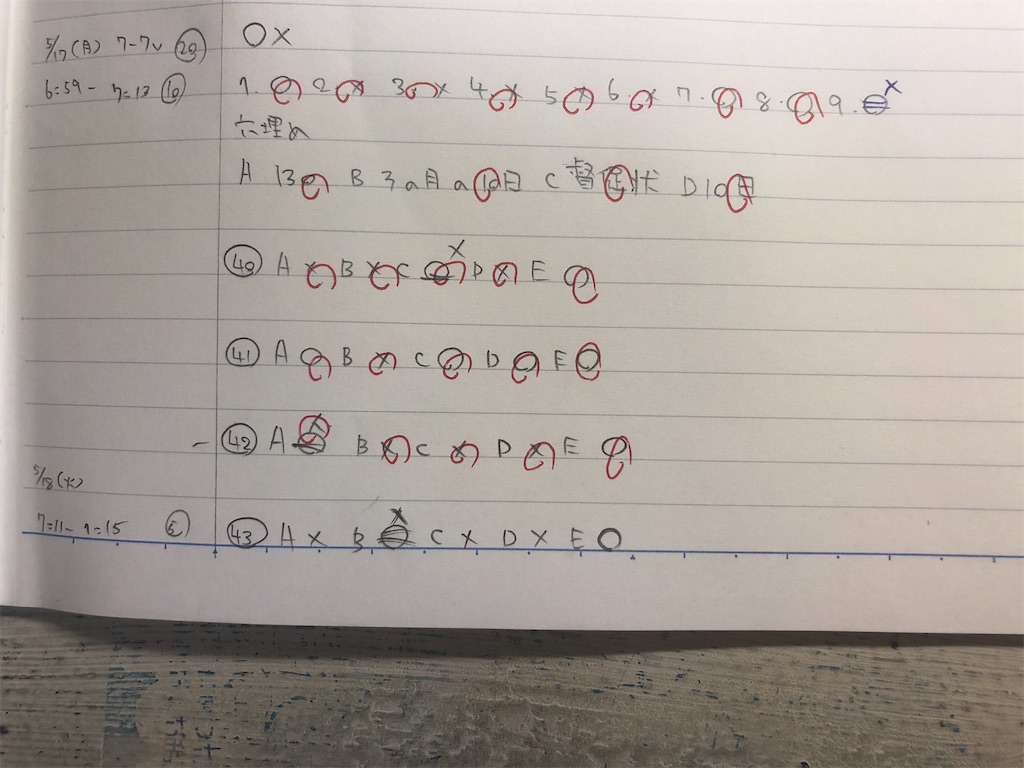 5/17(月) 7-7
○×
6:59 - 7:13
1. ○ 2 × 3 × 4 × 5 × 6 × 7. ○ 8. ○ 9. ×
穴埋め
A 13 B 3a月a10日 C 督促状 D 10
㊵ A × B × C × D × E ○
㊶ A ○ B × C ○ D ○ E ○
㊷ A × B × C × D × E ○
5/18(火)
7:11-
㊸ A × B × C × D × E ○